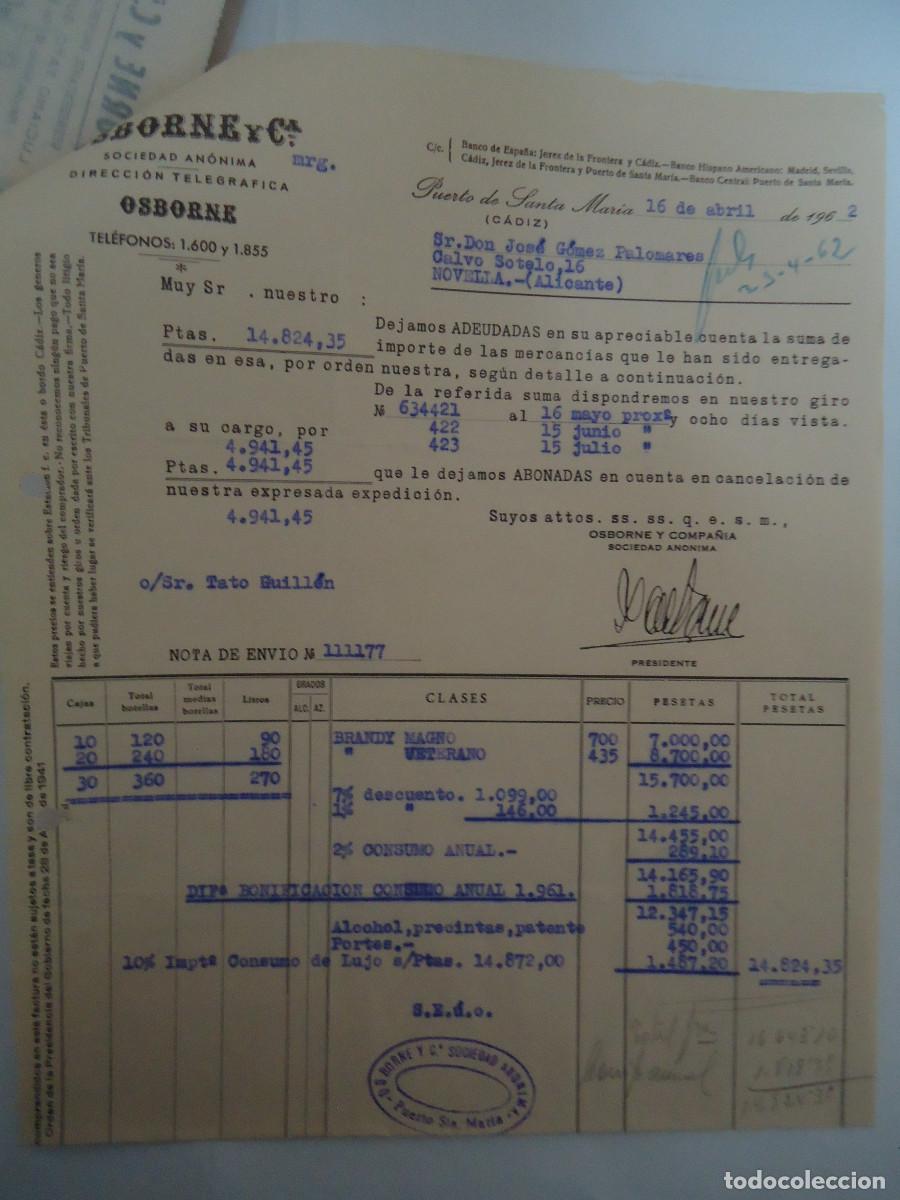 SBORNE Y Cª.
SOCIEDAD ANÓNIMA
mrg.
DIRECCIÓN TELEGRAFICA
OSBORNE
TELÉFONOS: 1.600 y 1.855
C/c. Banco de España: Jerez de la Frontera y Cádiz.—Banco Hispano Americano: Madrid, Sevilla,
Cádiz, Jerez de la Frontera y Puerto de Santa María.—Banco Central: Puerto de Santa María.
Puerto de Santa María 16 de abril de 1962
(CÁDIZ)
Sr.Don José Gómez Palomares
Calvo Sotelo,16
NOVELLA.-(Alicante)
23-4-62
Muy Sr . nuestro :
Ptas. 14.824,35 Dejamos ADEUDADAS en su apreciable cuenta la suma de
importe de las mercancías que le han sido entrega-
das en esa, por orden nuestra, según detalle a continuación.
De la referida suma dispondremos en nuestro giro
a su cargo, por № 634421 al 16 mayo proxº y ocho días vista.
4.941,45 422 15 junio "
Ptas. 4.941,45 423 15 julio "
que le dejamos ABONADAS en cuenta en cancelación de
nuestra expresada expedición.
4.941,45
Suyos attos. ss. ss. q. e. s. m.,
OSBORNE Y COMPAÑIA
SOCIEDAD ANONIMA
o/Sr. Tato Guillén
PRESIDENTE
NOTA DE ENVIO № 111177
Estos precios se entienden sobre f. e. en ésta o bordo Cádiz.—Los generos
viajan por cuenta y riesgo del comprador.- No reconocemos ningún pago que no sea
hecho por nuestros giros u orden dada por escrito con nuestra firma.—Todo litigio
a que pudiera haber lugar se verificará ante los Tribunales de Puerto de Santa María.
comprendidos en esta factura no están sujetos a tasa y son de libre contratación.
Orden de la Presidencia del Gobierno de fecha 28 de de 1941
Cajas Total botellas Total medias botellas Litros GRADOS ALC. AZ. CLASES PRECIO PESETAS TOTAL PESETAS
10 120 90 BRANDY MAGNO 700 7.000,00
20 240 180 " VETERANO 435 8.700,00
30 360 270 15.700,00
7% descuento. 1.099,00
1% " 146,00 1.245,00
14.455,00
2% CONSUMO ANUAL.- 289,10
14.165,90
DIFª BONIFICACION CONSUMO ANUAL 1.961. 1.818,75
12.347,15
Alcohol,precintas,patente 540,00
Portes.- 450,00
10% Imptº Consumo de Lujo s/Ptas. 14.872,00 1.487,20 14.824,35
S.E.ú.o.
OSBORNE Y Cª SOCIEDAD ANONIMA
Puerto Sta. María
todocoleccion